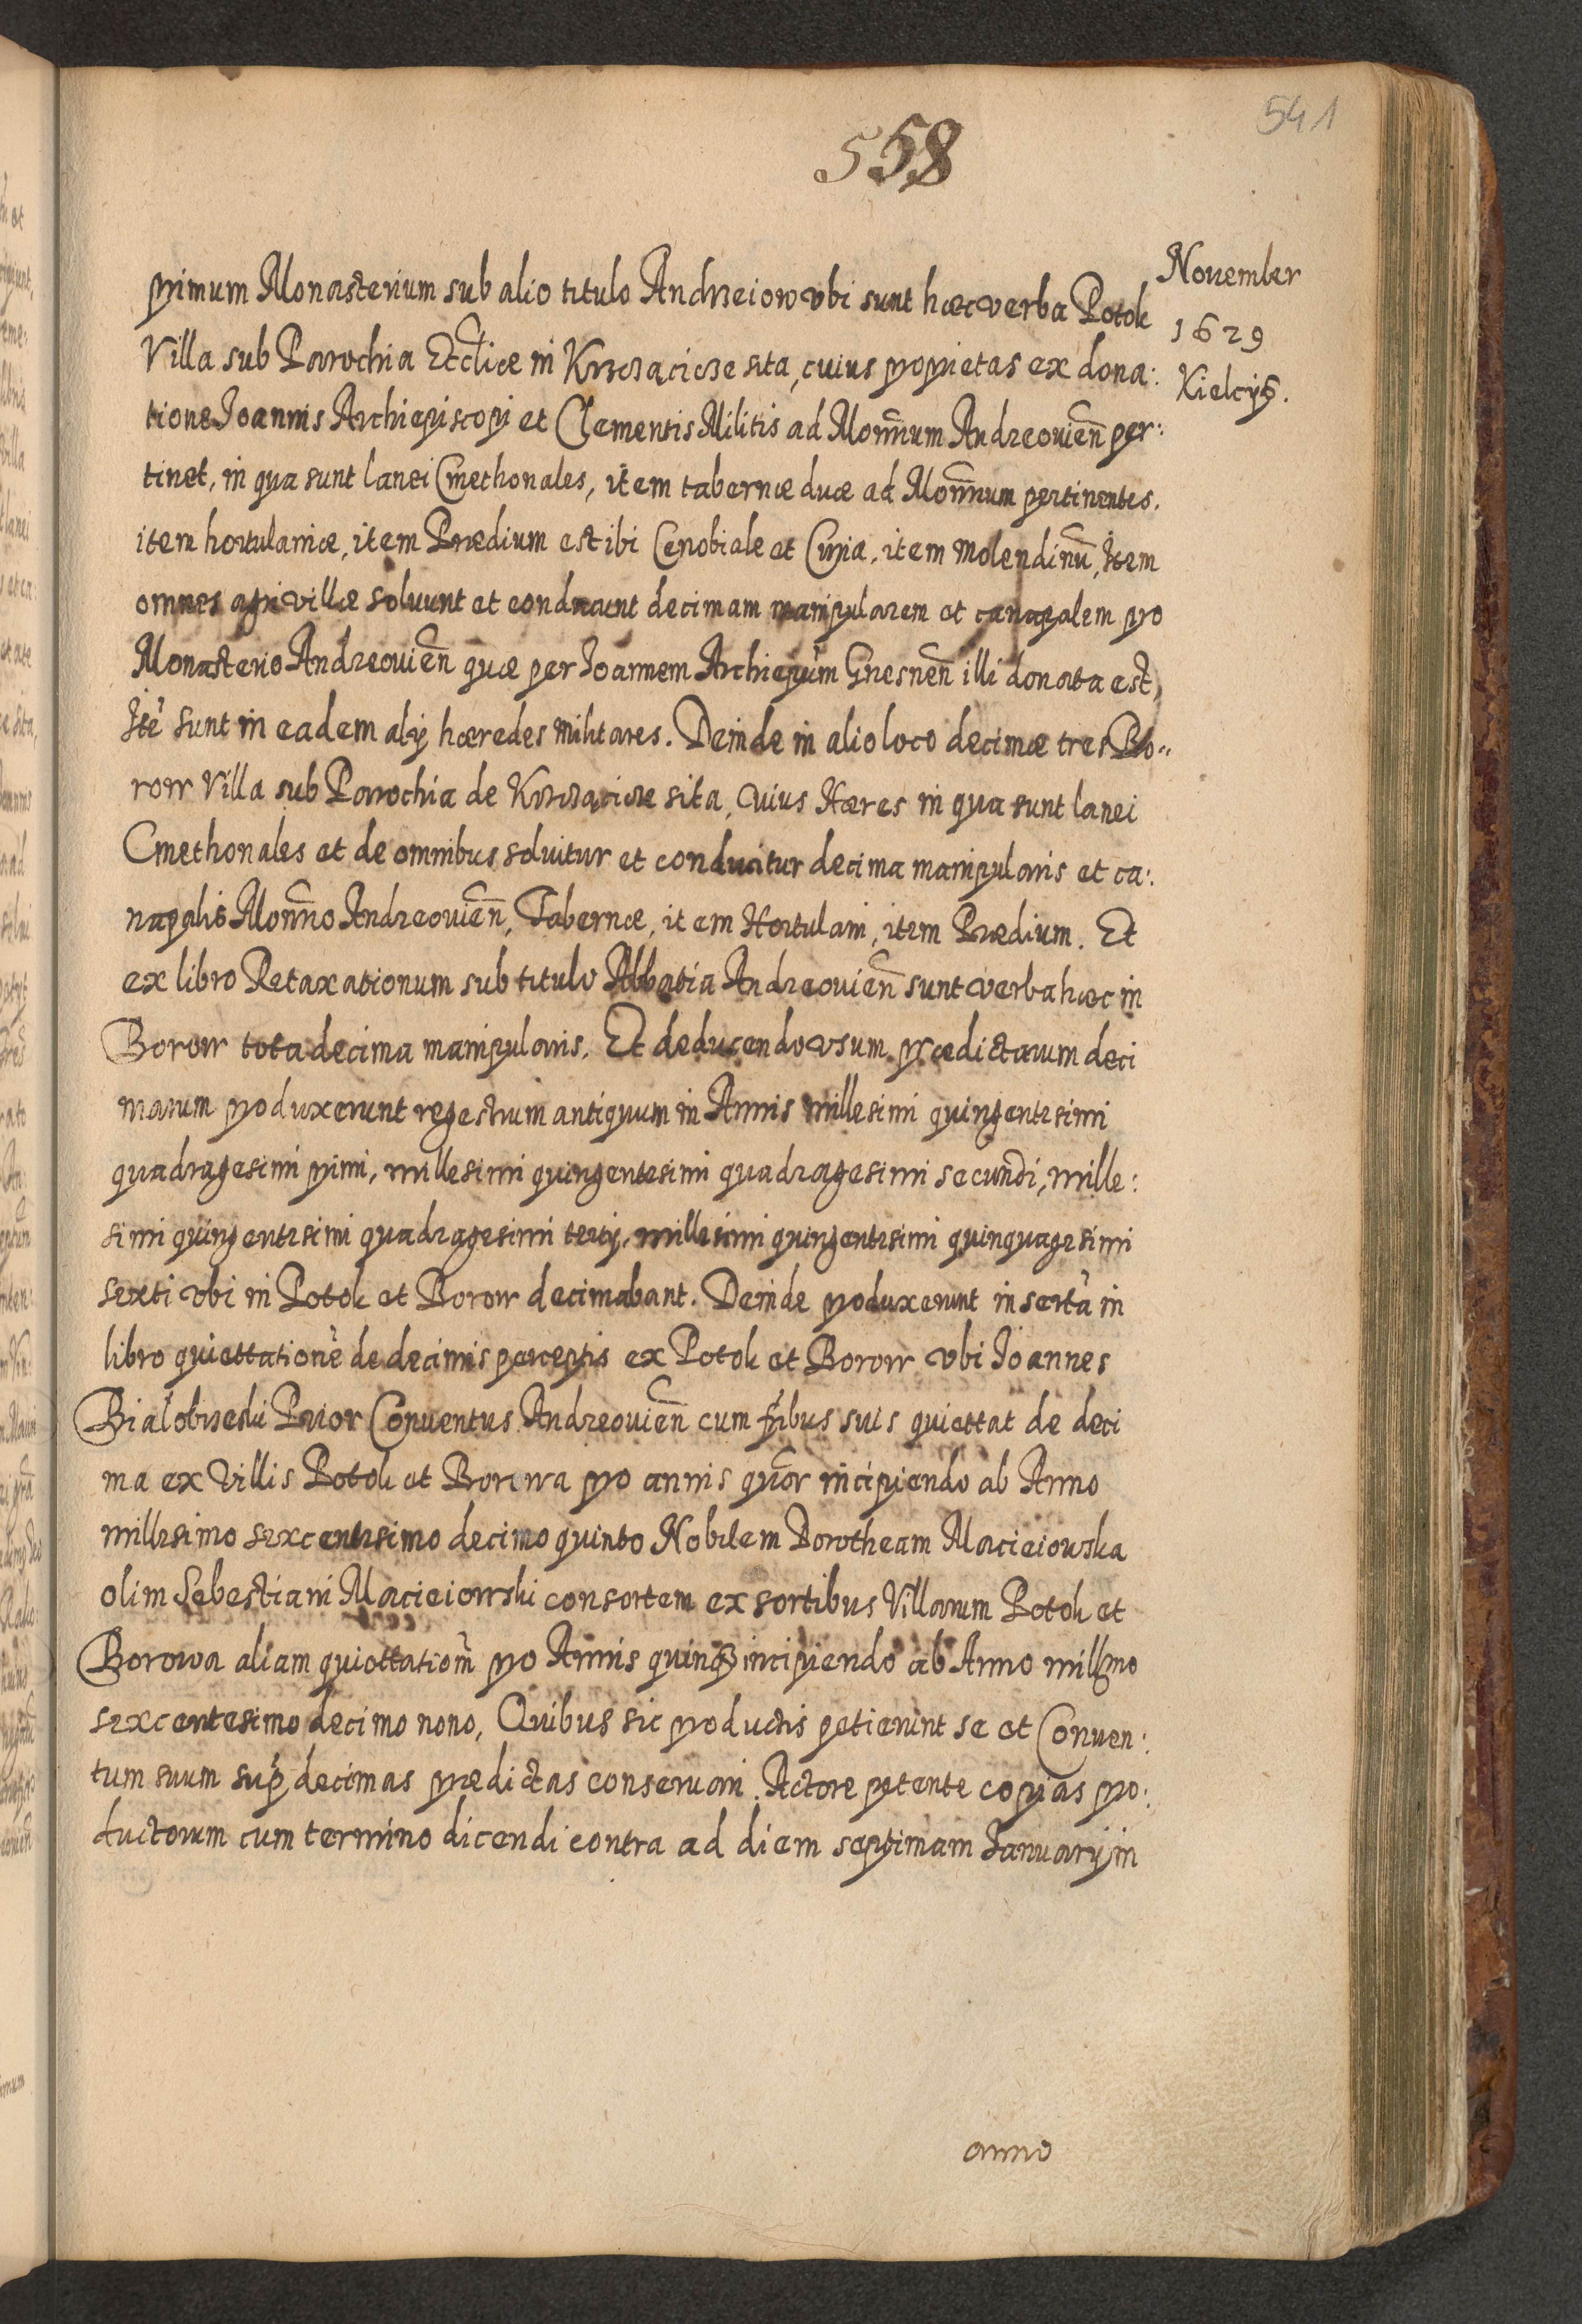 541
558
November
1629
Kielcijs.
primum Monasterium sub alio titulo Andrzeiow vbi sunt hæc verba Potok
Villa sub Parochia Eccłiæ in Krzcziącicze sita, cuius proprietas ex dona:
tione Joannis Archiepiscopi et Clementis Militis ad Monrīum Andreouien̄ per:
tinet, in qua sunt lanei Cmethonales, item tabernæ duæ ad Monrīum pertinentes.
item hortulaniæ, item Prædium est ibi Cenobiale et Curia, item molendinū, Item
omnes agri villæ soluunt et conducunt decimam manipularem et canapalem pro
Monasterio Andreouien̄ quæ per Joannem Archiepūm Gnesnen̄ illi donata est,
Itē sunt in eadem alij hæredes militares. Deinde in alio loco decimæ tres Bo..
row Villa sub Parochia de sita, cuius Hæres in qua sunt lanei
Cmethonales et de omnibus soluitur et conducitur decima manipularis et ca:
napalis Monrīo Andreouien̄, Tabernæ, item Hortulani, item Prædium. Et
ex libro Retaxationum sub titulo Abbatia Andreouien̄ sunt verba hæc in
Borow tota decima manipularis. Et deducendo vsum prædictarum deci
marum produxerunt regestrum antiquum in Annis millesimi quingentesimi
quadragesimi primi, millesimi quingentesimi quadragesimi secundi, mille:
simi quingentesimi quadragesimi tertij, millesimi quingentesimi quinquagesimi
sexti vbi in Potok et Borow decimabant. Deinde produxerunt insertā in
libro quiettationē de decimis perceptis ex Potok et Borow vbi Joannes
Białobrzeski Prior Conuentus Andreouien̄ cum fr̄ibus suis quiettat de deci
ma ex Villis Potok et Borowa pro annis quōr incipiendo ab Anno
millesimo sexcentesimo decimo quinto Nobilem Dorotheam Macieiowska
olim Sebestiani Macieiowski consortem ex sortibus Villarum Potok et
Borowa aliam quiettationē pro Annis quinqȝ incipiendo ab Anno millmo
sexcentesimo decimo nono, Quibus sic productis petierunt se et Conuen:
tum suum sup̄ decimas prædictas conseruari. Actore petente copias pro:
ductorum cum termino dicendi contra ad diem septimam Januarij in
anno